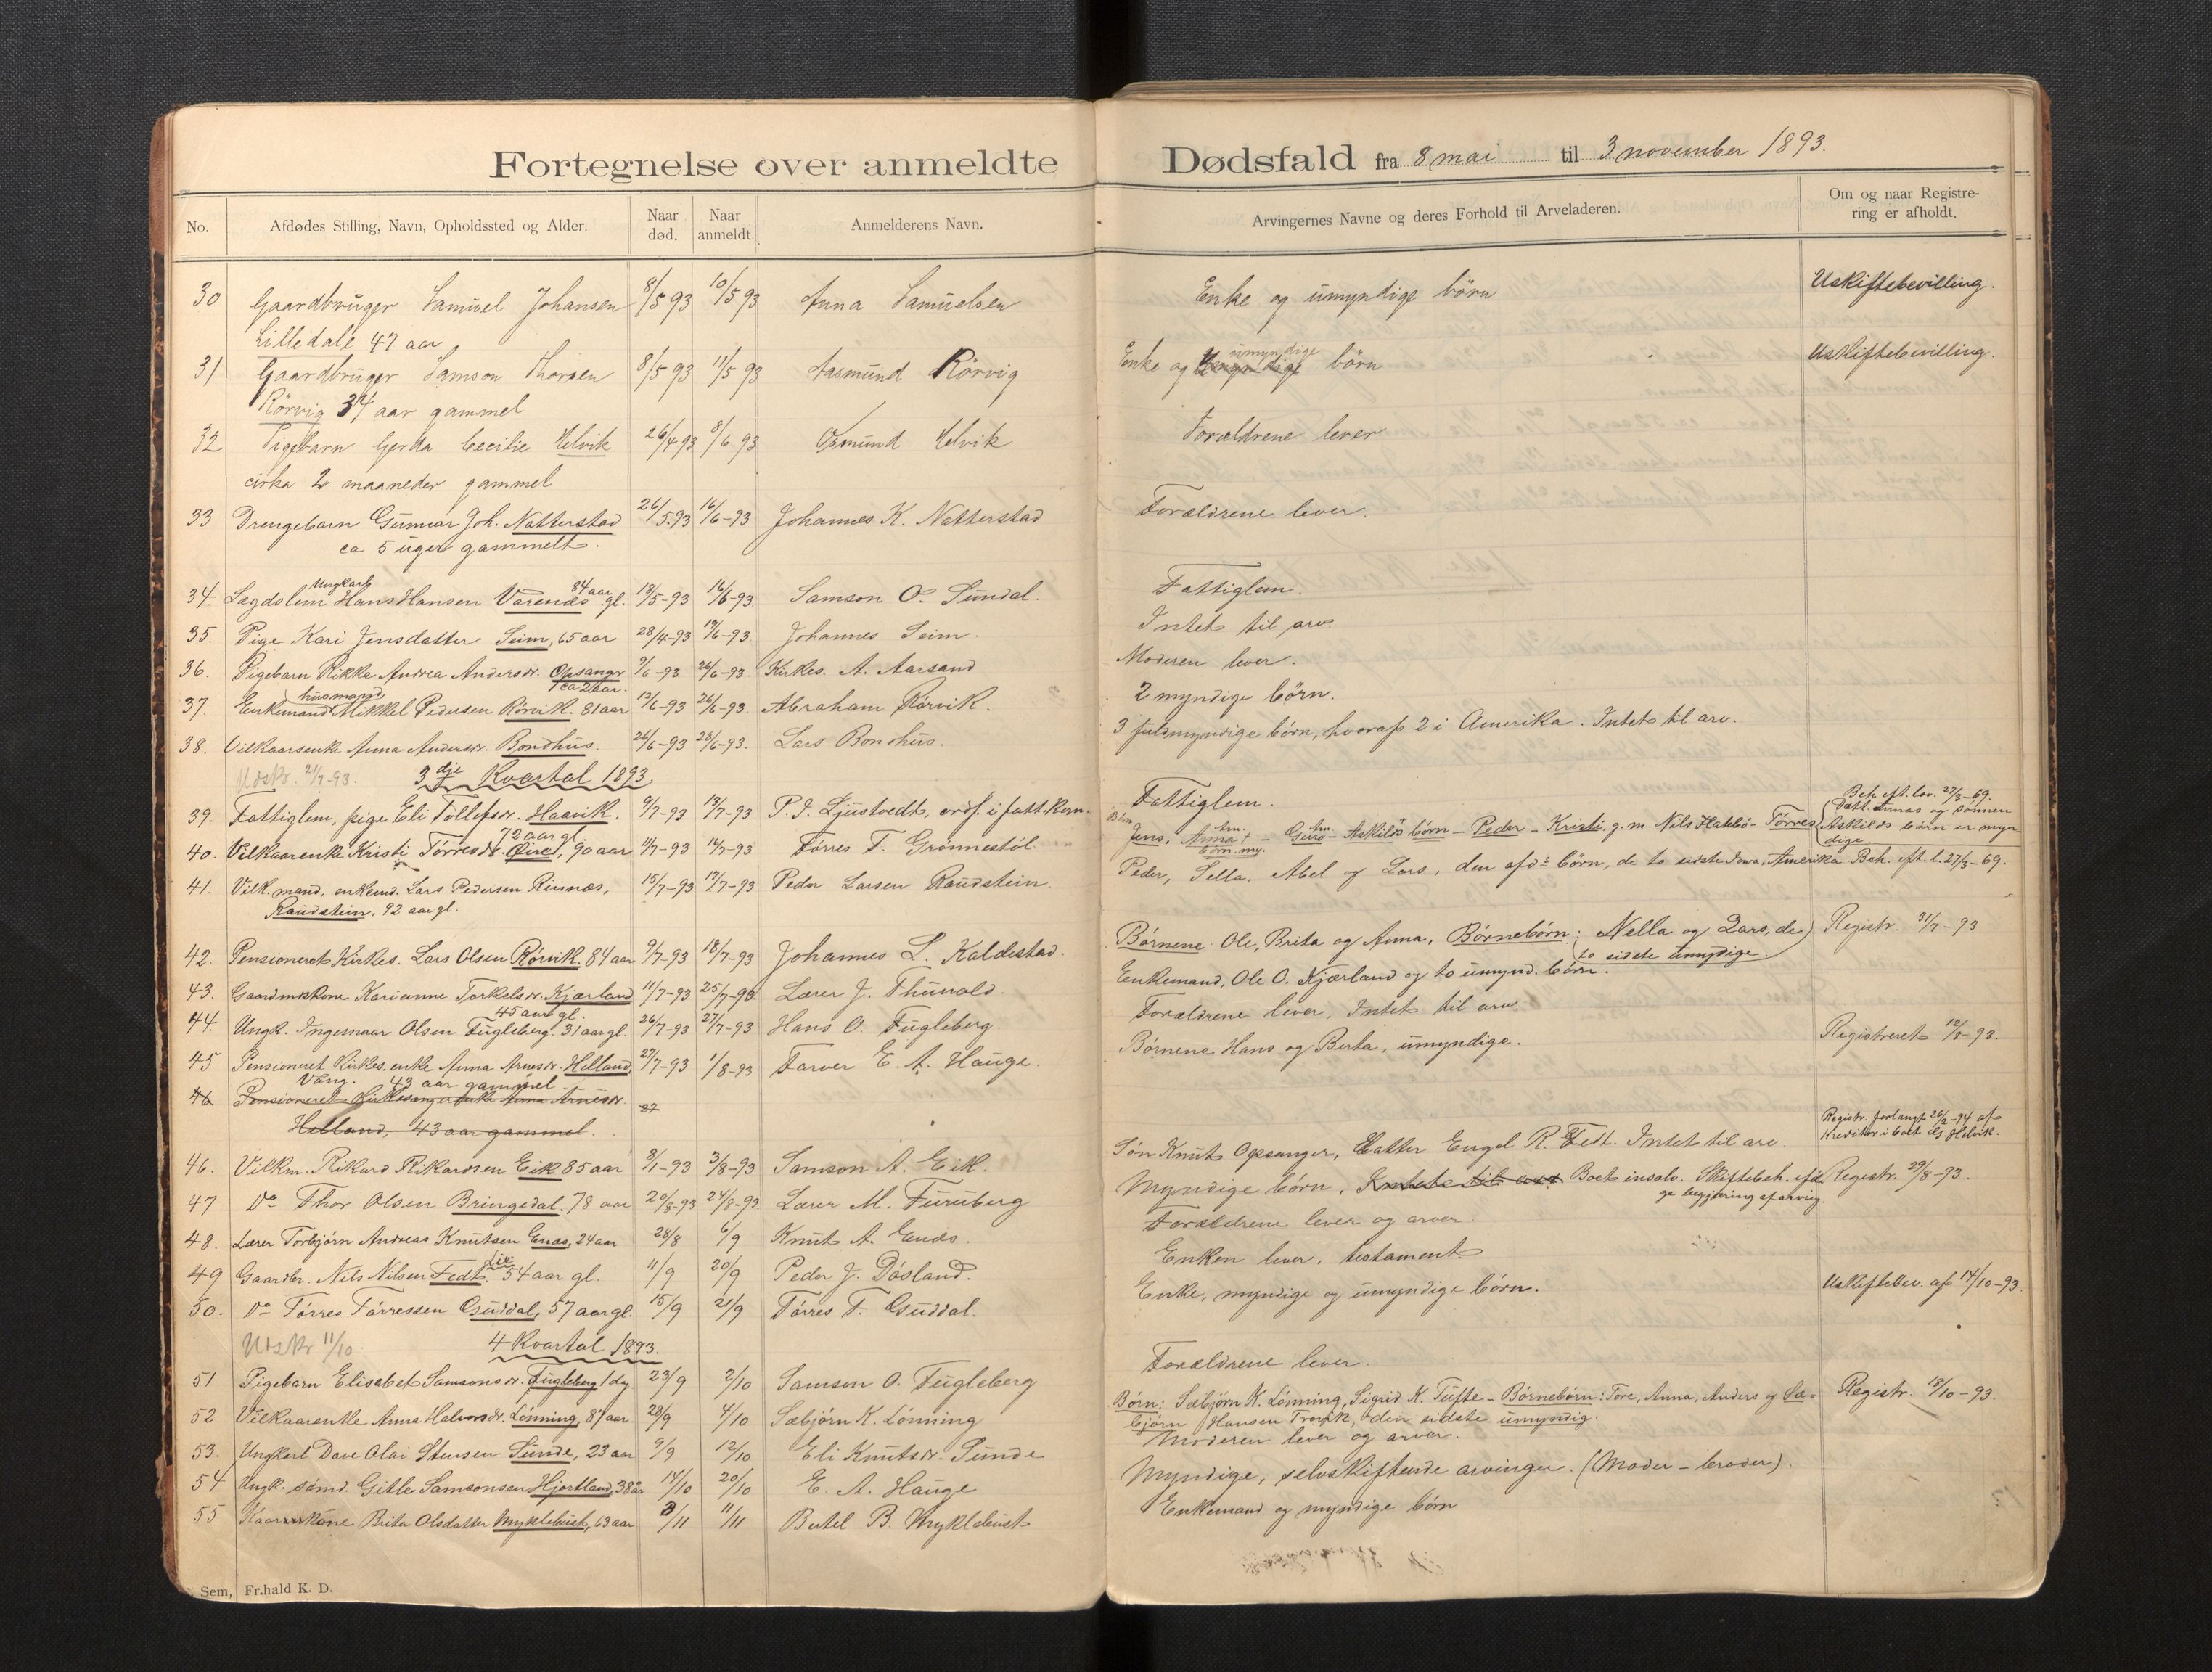 Fortegnelse over anmeldte Dødsfald fra 8 mai til 3 november 1893.
No. Afdødes Stilling, Navn, Opholdssted og Alder. Naar død. Naar anmeldt Anmelderens Navn. Arvingernes Navne og deres Forhold til Arveladeren. Om og naar Registrering er afholdt.
30 Gaardbruger Samuel Johansen 8/5 93 10/5 93 Anna Samuelsen Enke og umyndige børn Uskiftebevilling.
Lilledale 47 aar
31 Gaardbruger Samson Thorsen 8/5 93 11/5 93 Aasmund Rörvig Enke og umyndige børn Uskiftebevilling.
Rörvig 34 aar gammel
32 Pigebarn Gerda Cecilie Helvik 26/4 93 8/6 93 Osmund Helvik Forældrene lever
cirka 2 maaneder gammel
33 Drengebarn Gunnar Joh. Natterstad 26/5.93 16/6-93 Johannes K. Natterstad Forældrene lever.
ca 5 uger gammelt.
Ungkarl 84 aar
34. Lægdslem Hans Hansen Varenæs gl. 18/5-93 16/6-93. Samson O. Sundal. Fattiglem.
35. Pige Kari Jensdatter Seim, 65 aar 28/4-93 19/6-93. Johannes Seim. Intet til arv.
36. Pigebarn Rikka Andrea Andersdr. Opsanger 9/6-93 26/6-93 Kirkes. A. Aarsand Moderen lever.
ca 2 aar.
husmand
37. Enkemand Mikkel Pedersen Rörvik. 81 aar 13/6-93 26/6-93 Abraham Rörvik. 2 myndige børn.
38. Vilkaarsenke Anna Andersdr. Bondhus. 26/6-93 28/6-93. Lars Bondhus. 3 fuldmyndige børn, hvoraf 2 i Amerika. Intet til arv.
Udskr. 2/7-93. 3dje Kvartal 1893.
39. Fattiglem, pige Eli Tollefsdr. Haavik. 9/7-93 13/7-93 P. J. Ljustvedt, ordf. i fatt.kom. Fattiglem. Beh. eft. lov. 27/3-69.
72 aar gl.
40. Vilkaarenke Kristi Tørresdr. Øire, 90 aar 11/7-93 14/7-93 Tørres T. Grønnestöl Jens, Anna + - Guro - Askilds børn - Peder - Kristi, g. m. Nils Hatlebö - Tørres (Datt. Annas og sönnen Askilds børn er myndige
børn. my.
41. Vilk.mand, enkemd. Lars Pedersen Riisnæs, 15/7-93 17/7-93 Peder Larsen Raudstein. Peder, Sella, Abel og Lars, den afds børn, de to sidste Iowa, Amerika. Beh. eft. l. 27/3-69.
Raudstein, 92 aar gl.
42. Pensioneret Kirkes. Lars Olsen Rörvik. 84 aar 9/7-93 18/7-93 Johannes L. Kaldestad. Børnene Ole, Brita og Anna, Børnebörn: (Nella og Lars, de to sidste umyndige.) Registr. 31/7-93
43. Gaardmskone Karianne Torkelsdr. Kjærland 11/7-93 25/7-93 Lærer J. Thunold. Enkemand, Ole O. Kjærland og to umynd. børn.
45 aar gl.
44. Ungk. Ingemaar Olsen Fugleberg. 31 aar gl. 26/7-93 27/7-93 Hans O. Fugleberg. Forældrene lever, Intet til arv.
45 Pensioneret Kirkes.enke Anna Arnesdr. Helland 27/7-93 1/8-93 Farver E. A. Hauge. Børnene Hans og Berta, umyndige. Registreret 12/8-93.
Vang. 43 aar gammel.
46 Pensioneret Kirkesanger enke Anna Arnesdr. 27
Helland, 43 aar gammel.
46. Vilkm. Rikard Rikardsen Eik 85 aar 8/1-93 3/8-93 Samson A. Eik. Søn Knut Opsanger, Datter Engel R. Fedt. Intet til arv. Registr. forlangt 26/2-94 af Kreditor i boet Elj Helvik.
47 Do Thor Olsen Bringedal. 78 aar 20/8-93 24/8-93. Lærer M. Furuberg Myndige børn, Intet til arv Boet insolv. Skiftebeh. efter begjæring af arving. Registr. 29/8-93.
48. Lærer Torbjørn Andreas Knutsen Enæs, 24 aar 28/8 6/9 Knut A. Enæs. Forældrene lever og arver
49 Gaardbr. Nils Nilsen Fedt 54 aar gl. 11/9 20/9 Peder J. Døsland. Enken lever, testament.
50. Do Tørres Tørressen Guddal, 57 aar gl. 15/9 21/9 Tørres T. Guddal. Enke, myndige og umyndige børn. Uskiftebev. af 14/10-93
Utskr 11/10. 4 Kvartal 1893.
51 Pigebarn Elisabet Samsonsdr. Fugleberg 1 dg. 23/9 2/10 Samson O. Fugleberg Forældrene lever.
52 Vilkaarenke Anna Halvorsdr. Lönning, 87 aar 23/9 4/10 Sæbjörn K. Lönning Børn: Sæbjörn K. Lönning, Sigrid K. Tufte - Børnebörn: Tore, Anna, Anders og Sæ- Registr. 18/10-93.
björn Hansen Trovik, den sidste umyndig.
53. Ungkarl Dave Olai Stensen Sunde, 23 aar 9/9 12/10 Eli Knutsdr. Sunde Moderen lever og arver.
54 Ungk. sømd. Gitle Samsonsen Hjortland, 38 aar 14/10 20/10 E. A. Hauge Myndige, selvskiftende arvinger. (Moder - broder).
55 Kaarkone Brita Olsdatter Myklebust, 63 aar 3/11 11/11 Bertel B. Myklebust Enkemand og myndige børn
Sem, Fr.hald K. D.